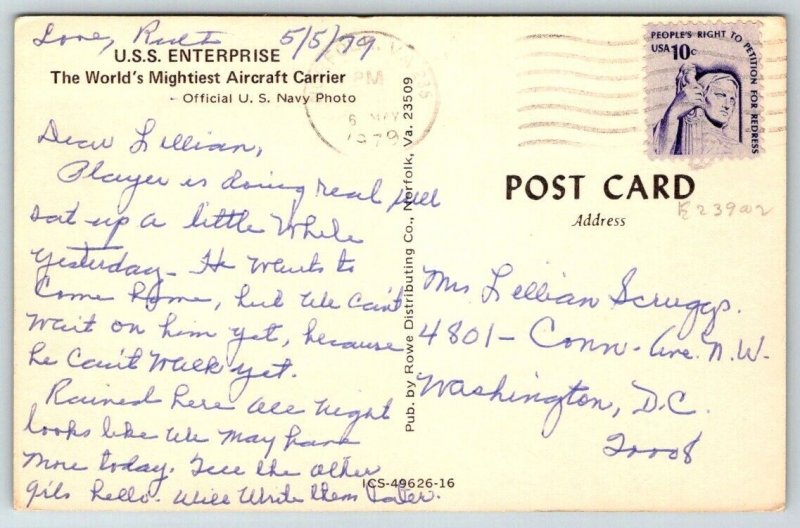 Love, Ruth 5/5/79
U.S.S. ENTERPRISE
The World's Mightiest Aircraft Carrier
- Official U. S. Navy Photo
Dear Lillian,
Player is doing real well
sat up a little while
yesterday - He wants to
come home, but we can't
wait on him yet, because
he can't walk yet.
Rained here all night
looks like we may have
more today. Tell the other
girls hello. Will write them later.
Pub. by Rowe Distributing Co., Norfolk, Va. 23509
ICS-49626-16
PM
6 MAY
1979
PEOPLE'S RIGHT TO PETITION FOR REDRESS
USA 10c
POST CARD
Address
E23902
Mrs Lillian Scruggs.
4801 - Conn. Ave. N.W.
Washington, D.C.
20008